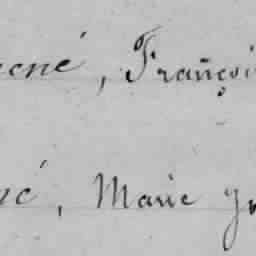 ené, Françoi
né, Marie